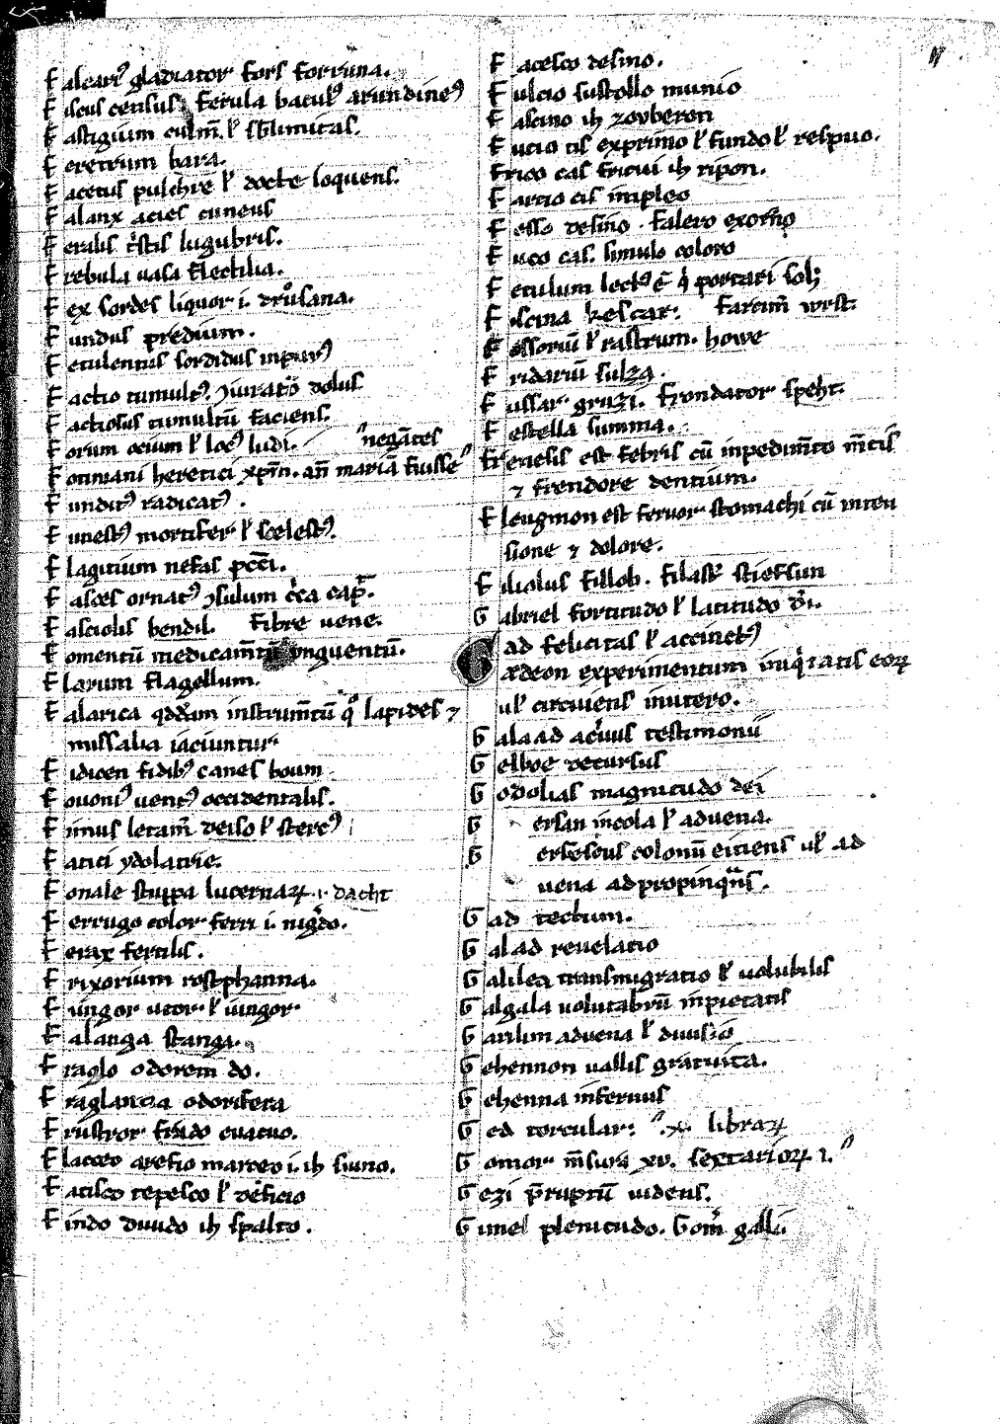 Falcari⁹ gladiator fors fortuna.
Fiscus census. Ferula bacul⁹ arundine⁹
Fastigium culm̄. ł sublimitas.
Feretrum bara.
Facetus pulchre ł docte loquens.
Falanx acies cuneus
Feralis tͥstis lugubris.
Frebula uasa flectilia.
Fex sordes liquor i. druͦsana.
Fundus predium.
Fetulentus sordidus inpur⁹
Factio tumult⁹. ꝯiuratio dolus
Factiosus tumultū faciens.
Forum ocium ł loc⁹ ludi.
negātes
Fotiniani heretici xp̄m. an̄ mariā fuisse
Fundit⁹ radicat⁹.
Funest⁹ mortifer ł scelest⁹.
Flagitium nefas pcc̄i.
Fasces ornat⁹ ꝯsulum cͥca cap.
Fasciolis bendil. Fibre uene.
Fomentū medicam̄tū vnguentū.
Flarum flagellum.
Falarica qđđam instrum̄tū qͦ lapides ⁊
missalia iaciuntur
Fidicen fidib⁹ canes boum
Fouoni⁹ uent⁹ occidentalis.
Fimus letam̄ deiso ł sterc⁹
Fatici ydolatrie.
Fonale stuppa lucernaꝝ. dacht
Ferrugo color ferri i. nigͦdo.
Ferax fertilis.
Frixorium rostphanna.
Fungor utor ł iungor.
Falanga stanga.
Fraglo odorem do.
Fraglancia odorifera
Frustror fraudo euacuo.
Flacceo arefio marceo i. ih siuno.
Fatisco tepesco ł deficio
Findo diuido ih spalto.
Facesco desino.
Fulcio sustollo munio
Fascino ih zovberon
Fucio cis exprimo ł fundo ł respuo.
Frico cas fricui ih ripon.
Farcio cis impleo
Fesso desino. Falero exorno
Fuco cas. simulo coloro
Fetulum lectus ē qͥ portari sol;
Fiscina kescar: Farcim̄ wrst.
Fossoriū ł rastrum. howe
Fridariū sulza.
Fussar gruzi. Frondator speht.
Festella summa.
Frenesis est febris cū inpedim̄to m̄tis
⁊ frendore dentium.
Flengmon est feruor stomachi cū inten
sione ⁊ dolore.
Filiolus fillob. Filast͛ stiefsun
Gabriel fortitudo ł latitudo di.
Gad felicitas ł accinct⁹
Gedeon experimentum iniqͥtatis eoꝝ
uł circuiens inutero.
Galaad aceruus testimonii
Gelboe decursus
Godolias magnitudo dei
G ersan incola ł aduena.
G ersescus colonū eiciens uł ad
uena adpropinqͣns.
Gad tectum.
Galad reuelatio
Galilea transmigratio ł uolubilis
Galgala uolutabrū inpietatis
Garilim aduena ł diuisio
Gehennon uallis gratuita.
Gehenna infernus
Ged torcular: .x. libraꝝ
Gomor m̄sura xv. sextarioꝝ i.
Gezi p̄ruptū uidens.
Gimel plenitudo. Gom̄ galli